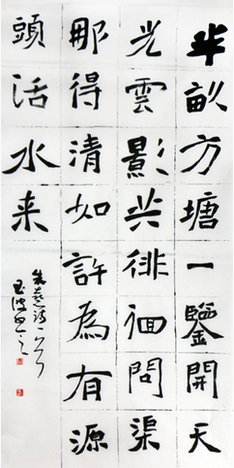 半畝方塘一鑒開天
光雲影共徘徊問渠
那得清如許為有源
頭活水来
朱熹詩一首